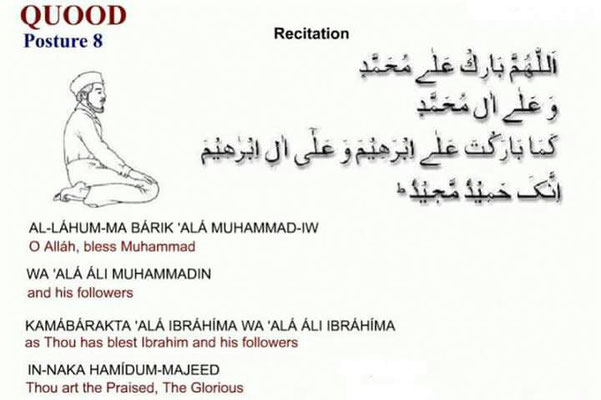 QUOOD
Posture 8
Recitation
اَللّٰهُمَّ بَارِكْ عَلٰے مُحَمَّدٍ
وَ عَلٰے اٰلِ مُحَمَّدٍ
كَمَا بَارَكْتَ عَلٰے اِبْرٰهِيْمَ وَ عَلٰٓى اٰلِ اِبْرٰهِيْمَ
اِنَّكَ حَمِيْدٌ مَّجِيْدٌ ؕ
AL-LÁHUM-MA BÁRIK 'ALÁ MUHAMMAD-IW
O Alláh, bless Muhammad
WA 'ALÁ ÁLI MUHAMMADIN
and his followers
KAMÁBÁRAKTA 'ALÁ IBRÁHÍMA WA 'ALÁ ÁLI IBRÁHÍMA
as Thou has blest Ibrahim and his followers
IN-NAKA HAMÍDUM-MAJEED
Thou art the Praised, The Glorious